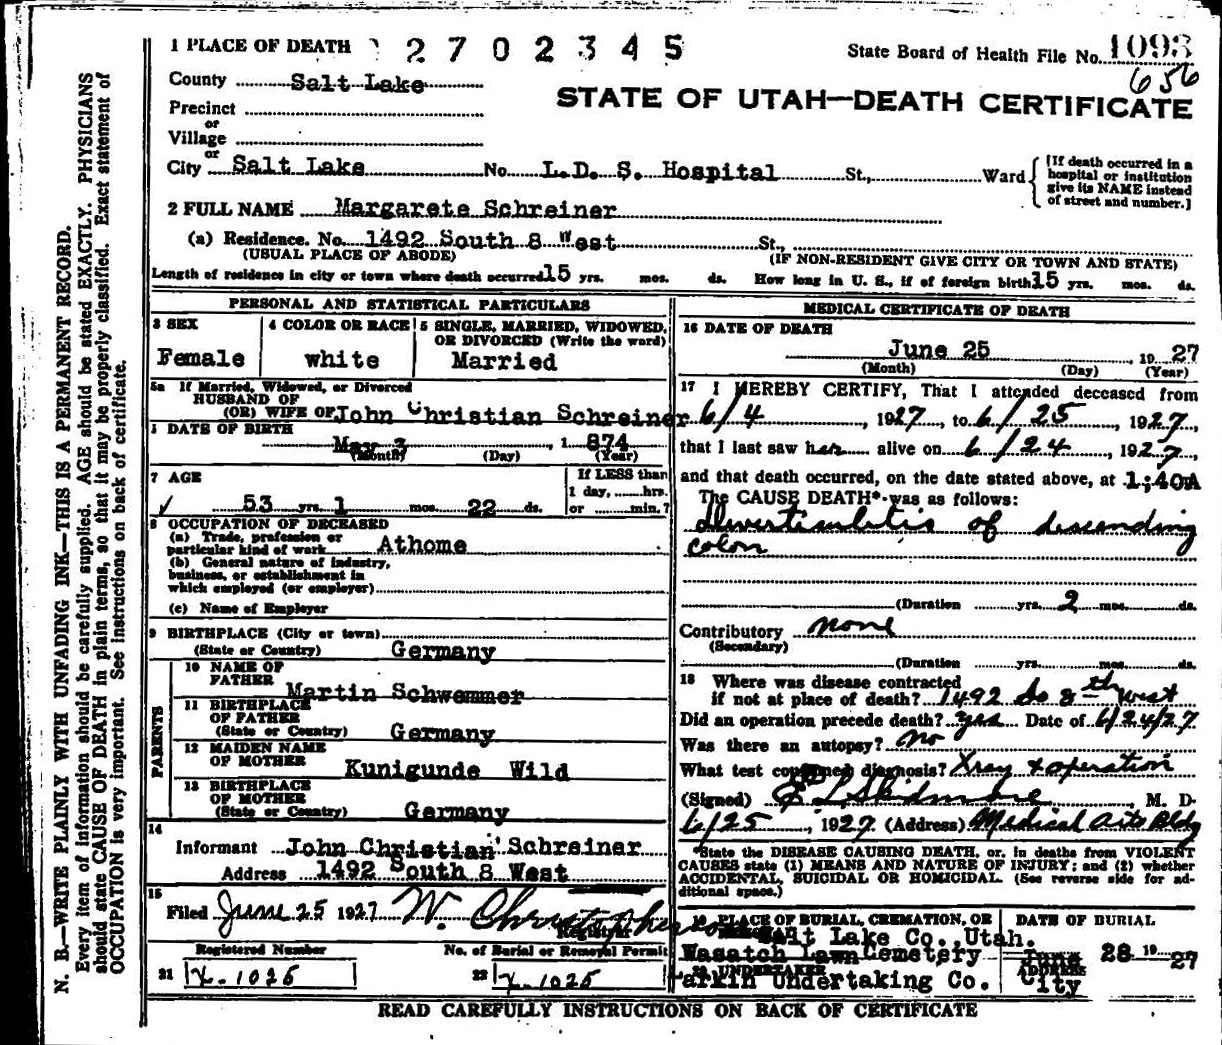 1 PLACE OF DEATH 2 7 0 2 3 4 5
State Board of Health File No. 1093
656
County Salt Lake
STATE OF UTAH—DEATH CERTIFICATE
Precinct
or
Village
or
City Salt Lake No. L.D. S. Hospital St., Ward {[If death occurred in a hospital or institution give its NAME instead of street and number.]
2 FULL NAME Margarete Schreiner
(a) Residence. No. 1492 South 8 West St.,
(USUAL PLACE OF ABODE) (IF NON-RESIDENT GIVE CITY OR TOWN AND STATE)
Length of residence in city or town where death occurred 15 yrs. mos. ds. How long in U. S., if of foreign birth 15 yrs. mos. ds.
PERSONAL AND STATISTICAL PARTICULARS
3 SEX
Female
4 COLOR OR RACE
white
5 SINGLE, MARRIED, WIDOWED,
OR DIVORCED (Write the word)
Married
5a If Married, Widowed, or Divorced
HUSBAND OF
(OR) WIFE OF John Christian Schreiner
DATE OF BIRTH
May 3 1 874
(Month) (Day) (Year)
7 AGE
53 yrs. 1 mos. 22 ds.
If LESS than
1 day, ......hrs.
or ........min.?
8 OCCUPATION OF DECEASED
(a) Trade, profession or
particular kind of work Athome
(b) General nature of industry,
business, or establishment in
which employed (or employer)
(c) Name of Employer
9 BIRTHPLACE (City or town)
(State or Country) Germany
PARENTS
10 NAME OF
FATHER Martin Schwemmer
11 BIRTHPLACE
OF FATHER
(State or Country) Germany
12 MAIDEN NAME
OF MOTHER Kunigunde Wild
13 BIRTHPLACE
OF MOTHER
(State or Country) Germany
14
Informant John Christian Schreiner
Address 1492 South 8 West
15
Filed June 25 1927 W. Christopherson
Registrar
Registered Number
21 X-1025
No. of Burial or Removal Permit
22 X-1025
MEDICAL CERTIFICATE OF DEATH
16 DATE OF DEATH
June 25, 19 27
(Month) (Day) (Year)
17 I HEREBY CERTIFY, That I attended deceased from
6/4, 1927, to 6/25, 1927,
that I last saw her alive on 6/24, 1927,
and that death occurred, on the date stated above, at 1;40A
The CAUSE DEATH* was as follows:
Diverticulitis of descending
colon
(Duration yrs. 2 mos. ds.
Contributory none
(Secondary)
(Duration yrs. mos. ds.
18 Where was disease contracted
if not at place of death? 1492 So 8th west
Did an operation precede death? yes Date of 6/24/27
Was there an autopsy? no
What test confirmed diagnosis? Xray & operation
(Signed) E L Skidmore, M. D.
6/25, 1927 (Address) Medical Arts Bldg
*State the DISEASE CAUSING DEATH, or, in deaths from VIOLENT
CAUSES state (1) MEANS AND NATURE OF INJURY; and (2) whether
ACCIDENTAL, SUICIDAL OR HOMICIDAL. (See reverse side for ad-
ditional space.)
19 PLACE OF BURIAL, CREMATION, OR
Salt Lake Co.,Utah.
Wasatch Lawn Cemetery
DATE OF BURIAL
June 28 19 27
20 UNDERTAKER
Larkin Undertaking Co.
ADDRESS
City
READ CAREFULLY INSTRUCTIONS ON BACK OF CERTIFICATE
N. B.—WRITE PLAINLY WITH UNFADING INK—THIS IS A PERMANENT RECORD.
Every item of information should be carefully supplied. AGE should be stated EXACTLY. PHYSICIANS
should state CAUSE OF DEATH in plain terms, so that it may be properly classified. Exact statement of
OCCUPATION is very important. See instructions on back of certificate.